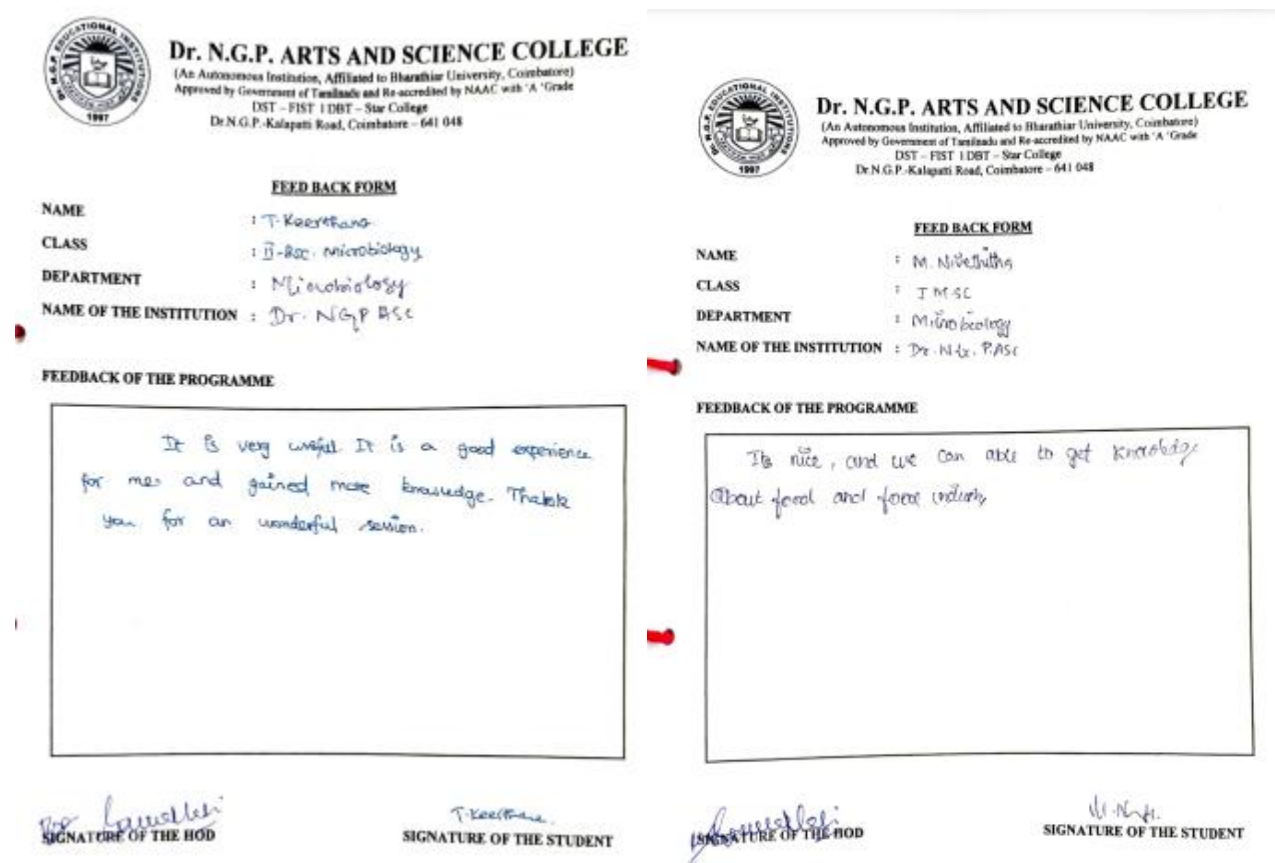 Dr. N.G.P. ARTS AND SCIENCE COLLEGE
(An Autonomous Institution, Affiliated to Bharathiar University, Coimbatore)
Approved by Government of Tamilnadu and Re-accredited by NAAC with 'A 'Grade
DST – FIST I DBT – Star College
Dr.N.G.P.-Kalapatti Road, Coimbatore – 641 048
FEED BACK FORM
NAME : T. Keerthana
CLASS : II-BSC. Microbiology
DEPARTMENT : Microbiology
NAME OF THE INSTITUTION : Dr. NGP ASC
FEEDBACK OF THE PROGRAMME
It is very useful. It is a good experience
for me. and gained more knowledge. Thank
you for an wonderful session.
T. Keerthana.
SIGNATURE OF THE HOD
SIGNATURE OF THE STUDENT
Dr. N.G.P. ARTS AND SCIENCE COLLEGE
(An Autonomous Institution, Affiliated to Bharathiar University, Coimbatore)
Approved by Government of Tamilnadu and Re-accredited by NAAC with 'A 'Grade
DST – FIST I DBT – Star College
Dr.N.G.P.-Kalapatti Road, Coimbatore – 641 048
FEED BACK FORM
NAME : M. Nivethitha
CLASS : I M.SC
DEPARTMENT : Microbiology
NAME OF THE INSTITUTION : Dr. N.G. P.ASC
FEEDBACK OF THE PROGRAMME
Its nice, and we can able to get knowledge
About food and food industry
SIGNATURE OF THE HOD
SIGNATURE OF THE STUDENT